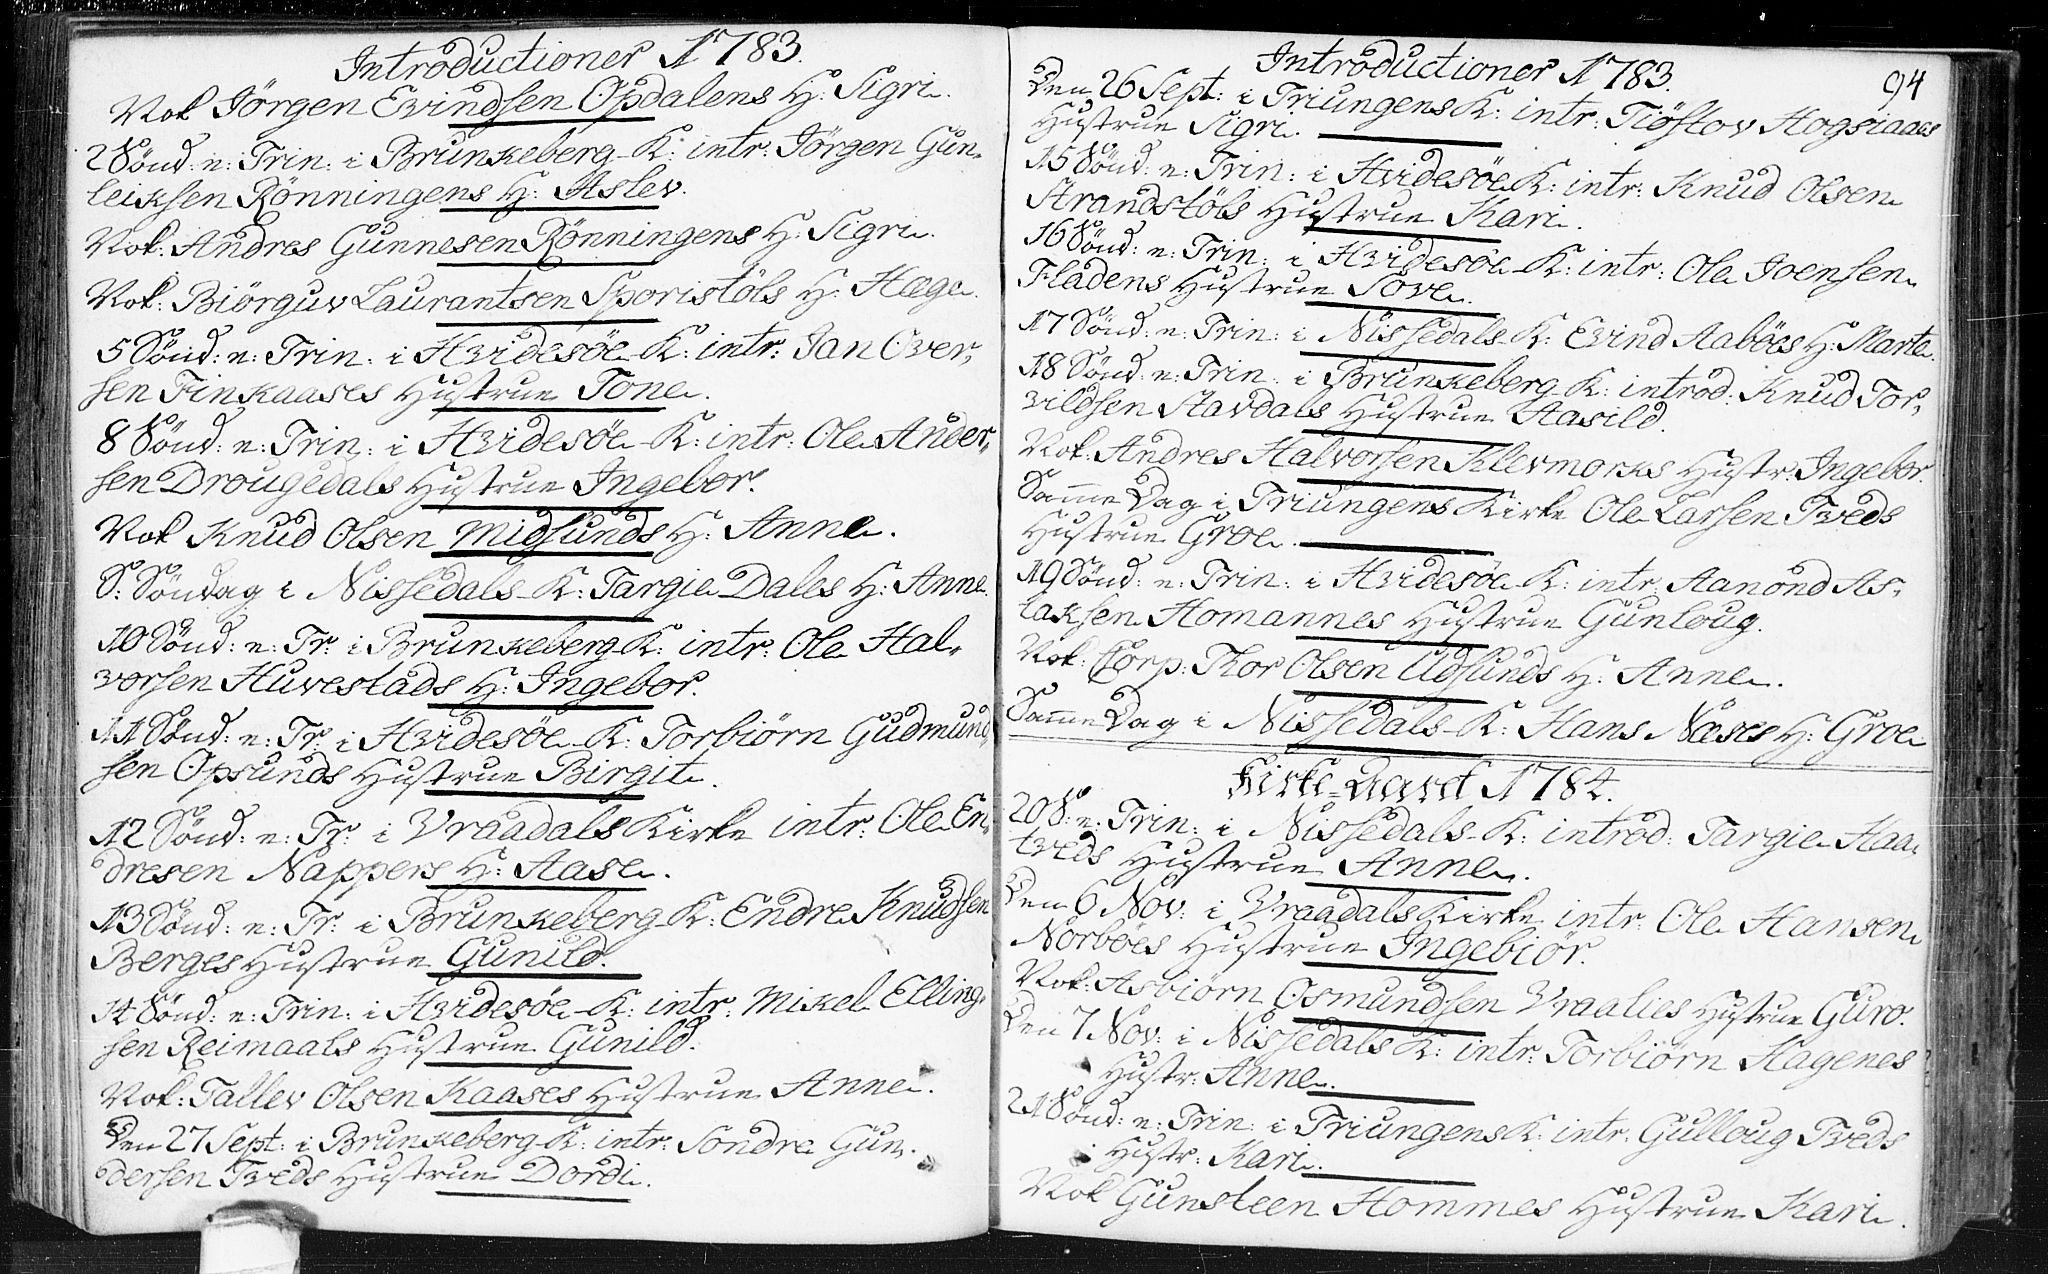 Introductioner 1783.
Vok Jörgen Evindsen Opdalens H: Sigri.
2 Sönd: n: Trin: i Brunkeberg K: intr: Jörgen Gun-
leiksen Rönningens H: Aslev.
Vok: Andres Gunnesen Rönningens H: Sigri.
Vok: Biörguv Laurantsen Sporistöls H: Hæge.
5 Sönd: n: Trin: i Hvidesöe K: intr: Jan Over-
sen Finkaases Hustrue Tone.
8 Sönd: n: Trin: i Hvidesöe K: intr: Ole Ander-
sen Drougedals Hustrue Ingebor.
Vok Knud Olsen Midsunds H: Anne.
S: Söndag i Nissedals K: Targie Dales H: Anne.
10 Sönd: n: Tr: i Brunkeberg K: intr: Ole Hal-
vorsen Huvestads H: Ingebor.
11 Sönd: n: Tr: i Hvidesöe K: Torbiörn Gudmund-
sen Opsunds Hustrue Birgit.
12 Sönd: n: Tr: i Vraadals Kirke intr: Ole En-
dresen Nappers H: Aase.
13 Sönd: n: Tr: i Brunkeberg K: Endre Knudsen
Berges Hustrue Gunild.
14 Sönd: n: Trin: i Hvidesöe K: intr: Mikel Elling-
sen Reimaals Hustrue Gunild.
Vok: Tallev Olsen Kaases Hustrue Anne.
Den 27 Sept: i Brunkeberg K: intr: Sondre Gun-
dersen Tveds Hustrue Dordi.
Introductioner 1783.
94
Den 26 Sept: i Triungens K: intr: Tiöstov Hogsiaaes
Hustrue Sigri.
15 Sönd: n: Trin: i Hvidesöe K: intr: Knud Olsen
Strandstöls Hustrue Kari.
16 Sönd: n: Trin: i Hvidesöe K: intr: Ole Joensen
Fladens Hustrue Tove.
17 Sönd: n: Trin: i Nissedals K: Evind Aaböes H: Marte.
18 Sönd: n: Trin: i Brunkeberg K: introd: Knud Tor-
vildsen Stavdals Hustrue Aasild.
Vok: Andres Halvorsen Klevmorks Hustr: Ingebor.
Samme Dag i Triungens Kirke Ole Larsen Tveds
Hustrue Groe.
19 Sönd: n: Trin: i Hvidesöe K: intr: Aanond As-
laksen Homannes Hustrue Gunloug.
Vok: Corp: Thor Olsen Udsunds H: Anne.
Samme Dag i Nissedals K: Hans Næses H: Groe
Kirke-Aaret 1784.
20 S: n: Trin: i Nissedals K: introd: Targie Haa-
tveds Hustrue Anne.
Den 6 Nov: i Vraadals Kirke intr: Ole Hansen
Norböes Hustrue Ingebiör.
Vok: Asbiörn Osmundsen Vraalies Hustrue Guro.
Den 7 Nov: i Nissedals K: intr: Torbiörn Hagenes
Hustr: Anne.
21 Sönd: n: Trin: i Triungens K: intr: Gulloug Tveds
Hustr: Kari.
Vok Gunsteen Hommes Hustrue Kari.